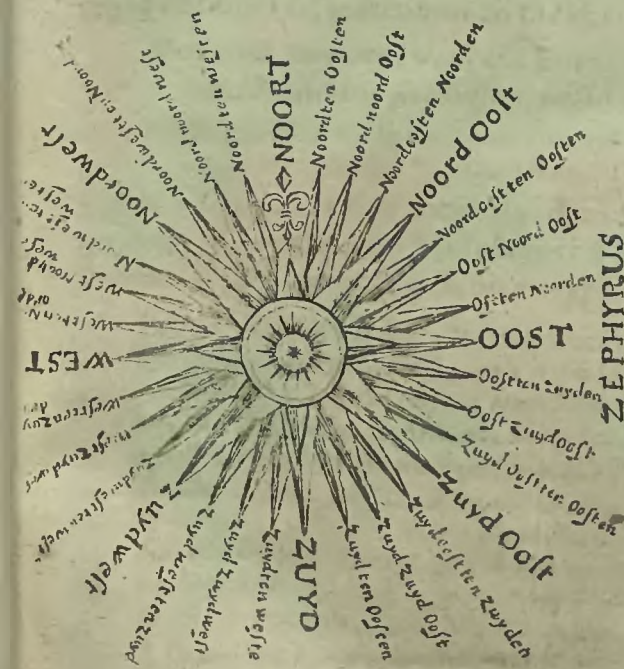 NOORT
Noordten Ooſten
Noord noord Ooſt
Noordooſten Noorden
Noord Ooſt
Noord oſt ten Ooſten
Ooſt Noord Ooſt
Oſtten Noorden
OOST
Ooſt ten Zuyden
Ooſt Zuyd Ooſt
Zuyd Ooſt ten Ooſten
Zuyd Ooſt
Zuydooſt ten Zuyden
Zuyd Zuyd Ooſt
Zuyd ten Ooſten
ZUYD
Zuydten weſte
Zuyd Zuydweſt
Zuydweſtenzuyd
Zuydweſt
Zuydweſten weſt
weſt Zuyd weſ
Weſtenzuy
den
WEST
Weſten N
weſt Noord
weſt
weſten
Noordweſt
Noordweſten Noord
Noord noord weſt
Noordten weſten
ZEPHYRUS